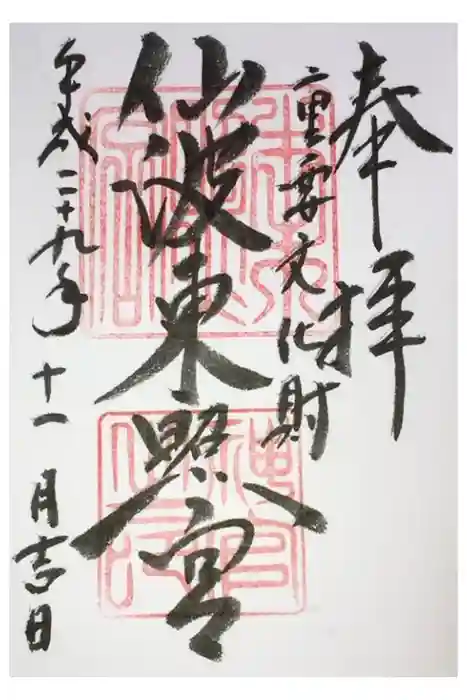 奉拝
重要文化財
仙波東照宮
平成二十九年十一月吉日